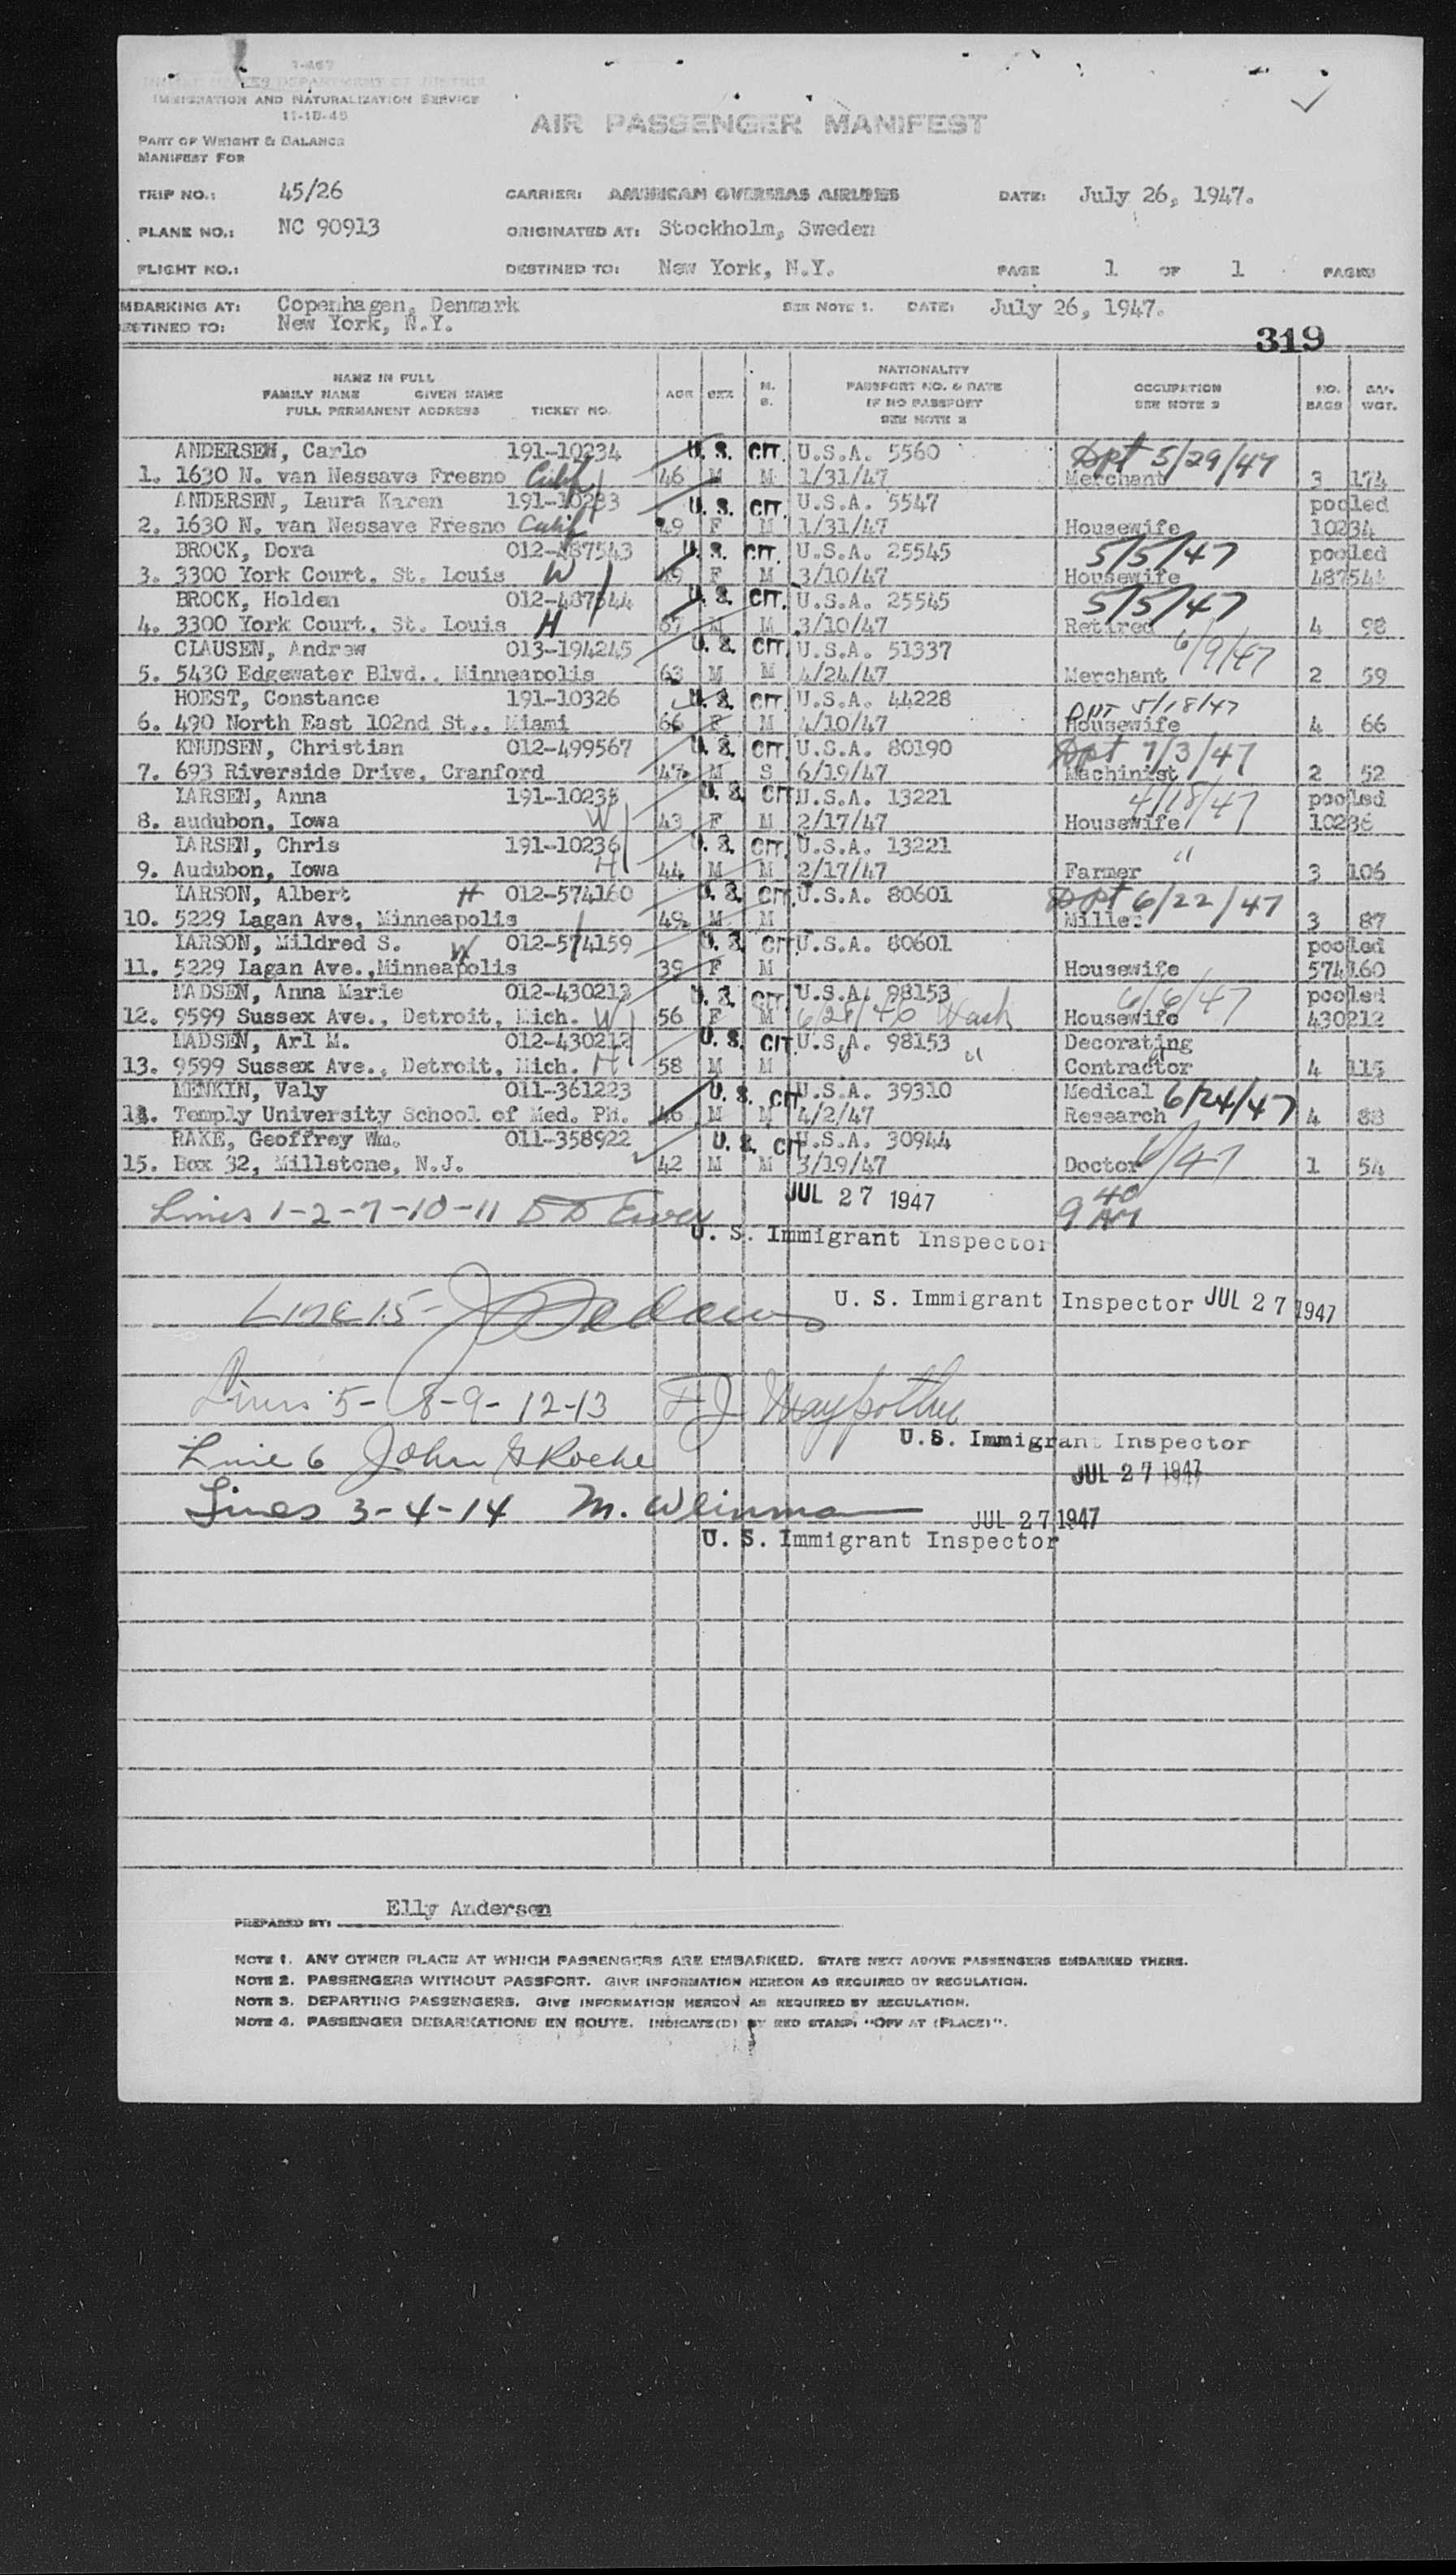 I-467
UNITED STATES DEPARTMENT OF JUSTICE
IMMIGRATION AND NATURALIZATION SERVICE
11-18-46
PART OF WEIGHT & BALANCE
MANIFEST FOR
AIR PASSENGER MANIFEST
TRIP NO.: 45/26 CARRIER: AMERICAN OVERSEAS AIRLINES DATE: July 26, 1947.
PLANE NO.: NC 90913 ORIGINATED AT: Stockholm, Sweden
FLIGHT NO.: DESTINED TO: New York, N.Y. PAGE 1 OF 1 PAGES
MBARKING AT: Copenhagen, Denmark SEE NOTE 1. DATE: July 26, 1947.
ESTINED TO: New York, N.Y.
319
NAME IN FULL
FAMILY NAME GIVEN NAME
FULL PERMANENT ADDRESS TICKET NO. AGE SEX M. S. NATIONALITY PASSPORT NO. & DATE IF NO PASSPORT SEE NOTE 2 OCCUPATION SEE NOTE 3 NO. BAGS WGT.
ANDERSEN, Carlo 191-10234 U. S. CIT. U.S.A. 5560 Dpt 5/29/47
1. 1630 N. van Nessave Fresno Calif 46 M M 1/31/47 Merchant 3 174
ANDERSEN, Laura Karen 191-10233 U. S. CIT. U.S.A. 5547 pooled
2. 1630 N. van Nessave Fresno Calif 49 F M 1/31/47 Housewife 10234
BROCK, Dora 012-487543 U. S. CIT. U.S.A. 25545 5/5/47 pooled
3. 3300 York Court, St. Louis W F M 3/10/47 Housewife 487544
BROCK, Holden 012-487544 U. S. CIT. U.S.A. 25545 5/5/47
4. 3300 York Court, St. Louis H 67 M M 3/10/47 Retired 4 98
CLAUSEN, Andrew 013-194245 U. S. CIT. U.S.A. 51337 6/9/47
5. 5430 Edgewater Blvd., Minneapolis 63 M M 4/24/47 Merchant 2 59
HOEST, Constance 191-10326 U. S. CIT. U.S.A. 44228 DPT 5/18/47
6. 490 North East 102nd St., Miami 66 F M 4/10/47 Housewife 4 66
KNUDSEN, Christian 012-499567 U. S. CIT. U.S.A. 80190 Dpt 7/3/47
7. 693 Riverside Drive, Cranford 47 M S 6/19/47 Machinist 2 52
LARSEN, Anna 191-10235 U. S. CIT U.S.A. 13221 4/18/47 pooled
8. audubon, Iowa W 43 F M 2/17/47 Housewife 10236
LARSEN, Chris 191-10236 U. S. CIT. U.S.A. 13221 "
9. Audubon, Iowa H 44 M M 2/17/47 Farmer 3 106
LARSON, Albert H 012-574160 U. S. CIT. U.S.A. 80601 Dpt 6/22/47
10. 5229 Lagan Ave, Minneapolis 49 M M Miller 3 87
LARSON, Mildred S. W 012-574159 U. S. CIT. U.S.A. 80601 pooled
11. 5229 Lagan Ave.,Minneapolis 39 F M Housewife 574160
MADSEN, Anna Marie 012-430213 U. S. CIT. U.S.A. 98153 6/6/47 pooled
12. 9599 Sussex Ave., Detroit, Mich. W 56 F M 6/28/46 Wash Housewife 430212
MADSEN, Arl M. 012-430212 U. S. CIT U.S.A. 98153 Decorating
13. 9599 Sussex Ave., Detroit, Mich. H 58 M M " " Contractor " 4 115
MENKIN, Valy 011-361223 U. S. CIT U.S.A. 39310 Medical 6/24/47
14. Temply University School of Med. PH. 46 M M 4/2/47 Research 4 88
RAKE, Geoffrey Wm. 011-358922 U. S. CIT U.S.A. 30944
15. Box 32, Millstone, N.J. 42 M M 3/19/47 Doctor 6/47 1 54
Lines 1-2-7-10-11 JUL 27 1947 9 40 AM
U. S. Immigrant Inspector
Line 15- U. S. Immigrant Inspector JUL 27 1947
Lines 5-8-9-12-13
U.S. Immigrant Inspector
Line 6 John G Roche JUL 27 1947
Lines 3-4-14 M. Weinman JUL 27 1947
U. S. Immigrant Inspector
PREPARED BY: Elly Andersen
NOTE 1. ANY OTHER PLACE AT WHICH PASSENGERS ARE EMBARKED. STATE NEXT ABOVE PASSENGERS EMBARKED THERE.
NOTE 2. PASSENGERS WITHOUT PASSPORT. GIVE INFORMATION HEREON AS REQUIRED BY REGULATION.
NOTE 3. DEPARTING PASSENGERS. GIVE INFORMATION HEREON AS REQUIRED BY REGULATION.
NOTE 4. PASSENGER DEBARKATIONS EN ROUTE. INDICATE(D) BY RED STAMP: "OFF AT (PLACE)".